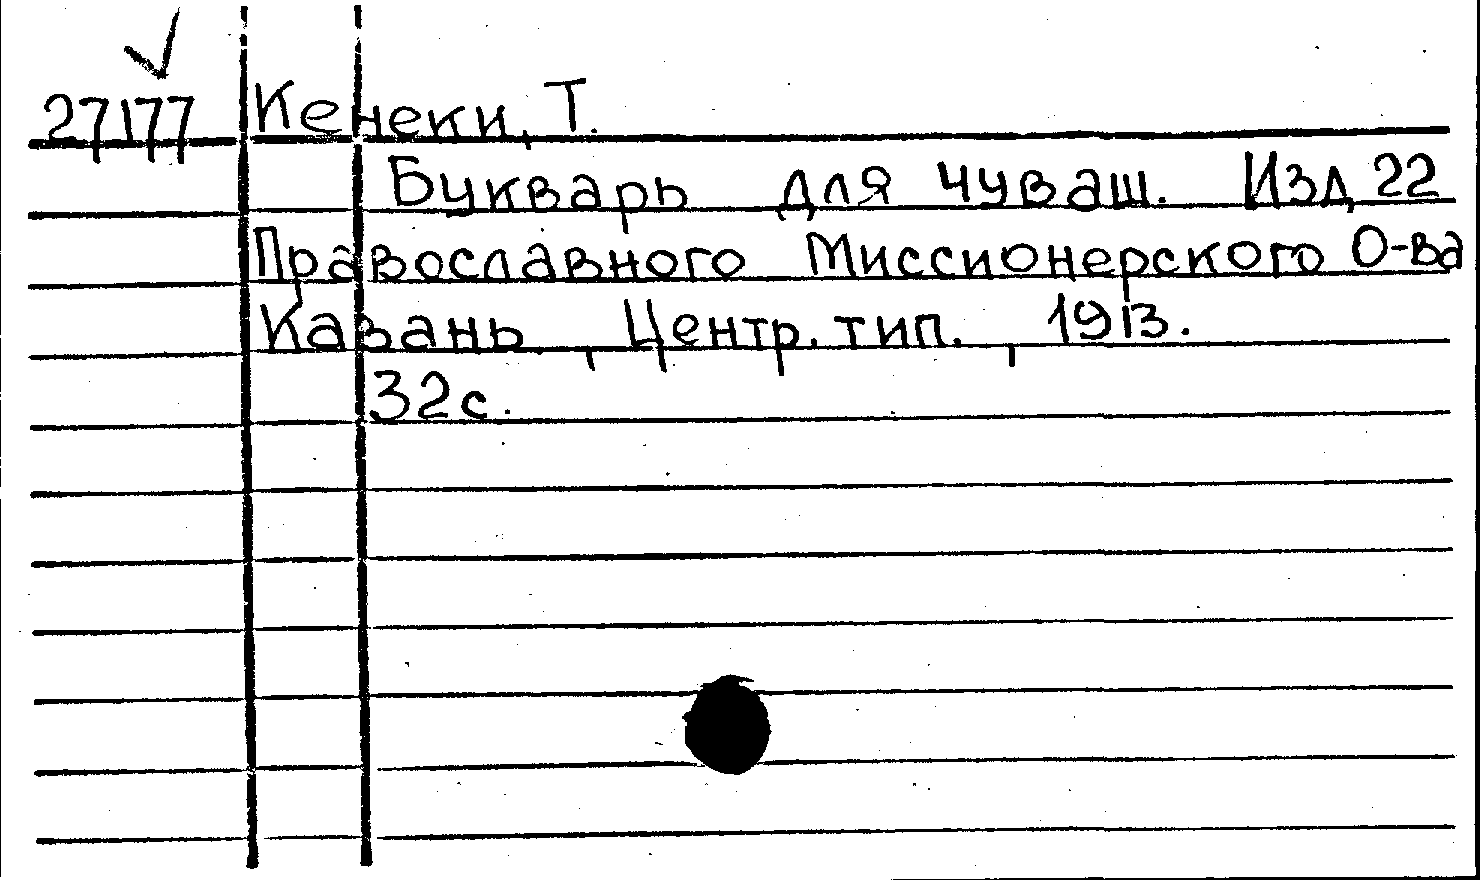 27177 Кенеки, Т.
Букварь для чуваш. Изд 22
Православного Миссионерского О-ва
Казань, Центр. тип., 1913.
32с.